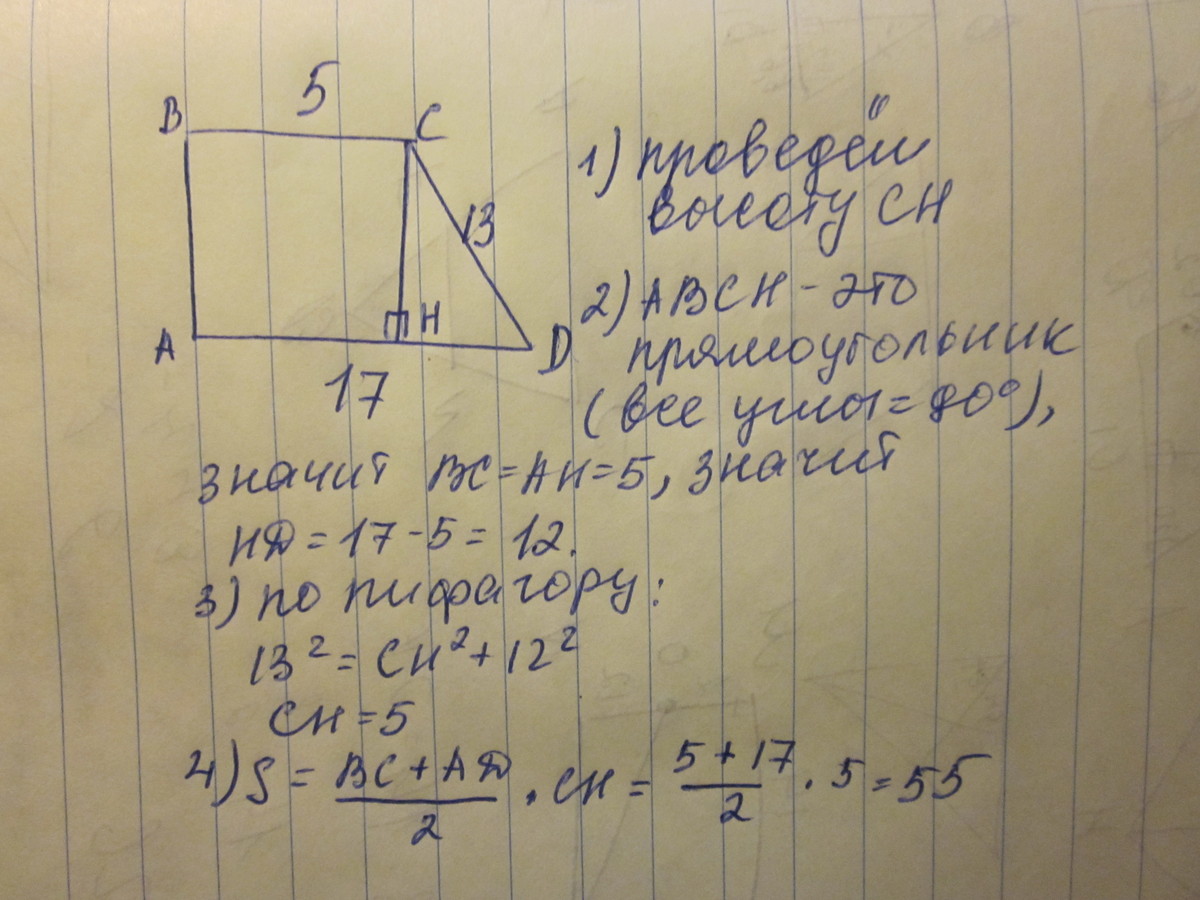 5
B
C
13
A
H
D
17
1) проведём
высоту CH
2) ABCH - это
прямоугольник
(все углы = 90°),
значит BC = AH = 5, значит
HD = 17 - 5 = 12.
3) по пифагору:
13² = CH² + 12²
CH = 5
4) S = \frac{BC + AD}{2} · CH = \frac{5 + 17}{2} · 5 = 55